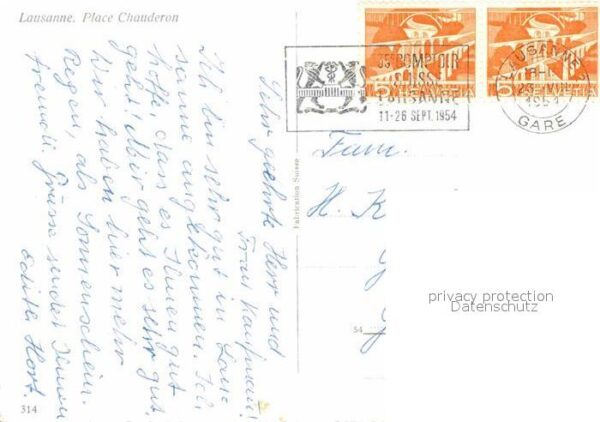 Lausanne. Place Chauderon
Sehr geehrte Herr und
Frau Kaufmann!
Ich bin sehr gut in Lau-
sanne angekommen. Ich
hoffe, dass es Ihnen gut
geht! Mir geht es sehr gut.
Wir haben hier mehr
Regen, als Sonnenschein.
Freundl. Grüsse sendet Ihnen
Edith Hort.
314
Fabrication Suisse
54
35e COMPTOIR
SUISSE
LAUSANNE
11-26 SEPT. 1954
LAUSANNE
1954
GARE
5
HELVETIA
5
HELVETIA
Fam.
H. K
privacy protection
Datenschutz